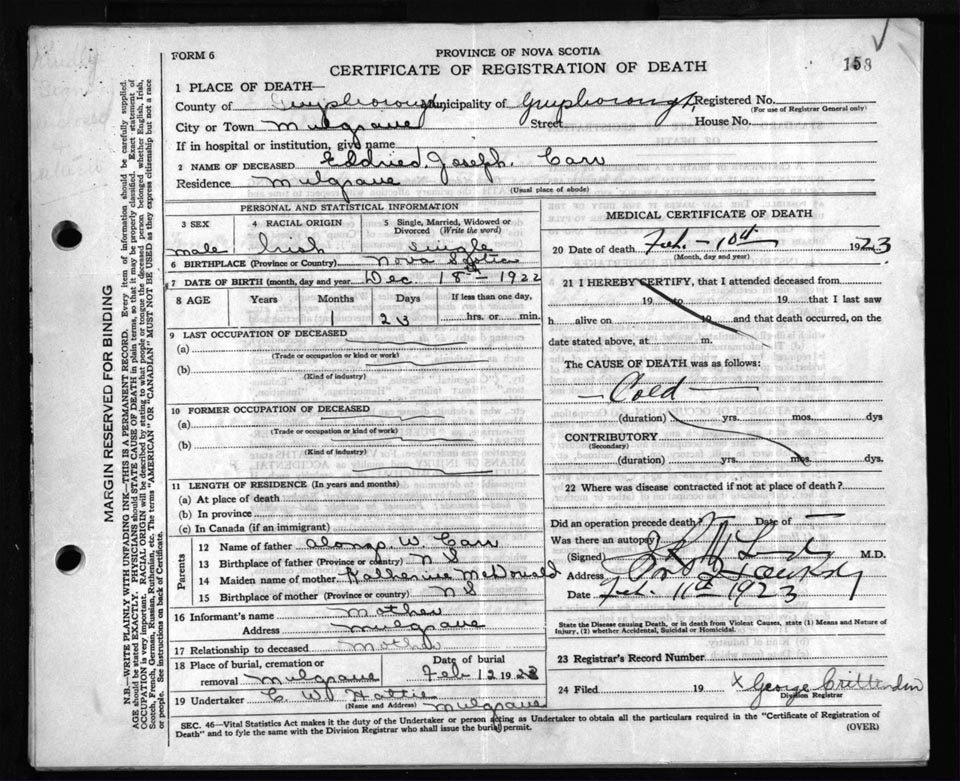 FORM 6
PROVINCE OF NOVA SCOTIA
CERTIFICATE OF REGISTRATION OF DEATH
153
1 PLACE OF DEATH—
County of Guysborough Municipality of Guysborough Registered No.
(For use of Registrar General only)
City or Town Mulgrave Street House No.
If in hospital or institution, give name
2 NAME OF DECEASED Joseph. Carr
Residence Mulgrave
(Usual place of abode)
PERSONAL AND STATISTICAL INFORMATION
3 SEX 4 RACIAL ORIGIN 5 Single, Married, Widowed or Divorced (Write the word)
male Irish Single
6 BIRTHPLACE (Province or Country) Nova Scotia
7 DATE OF BIRTH (month, day and year) Dec 18th 1922
8 AGE Years Months Days If less than one day,
1 23 hrs. or min.
9 LAST OCCUPATION OF DECEASED
(a)
(Trade or occupation or kind or work)
(b)
(Kind of industry)
10 FORMER OCCUPATION OF DECEASED
(a)
(Trade or occupation or kind of work)
(b)
(Kind of industry)
11 LENGTH OF RESIDENCE (In years and months)
(a) At place of death
(b) In province
(c) In Canada (if an immigrant)
Parents
12 Name of father Alonzo W. Carr
13 Birthplace of father (Province or country) N S
14 Maiden name of mother Katherine McDonald
15 Birthplace of mother (Province or country) N S
16 Informant's name Mother
Address Mulgrave
17 Relationship to deceased Mother
18 Place of burial, cremation or removal Mulgrave Date of burial Feb 12 1923
19 Undertaker C W Hattie
(Name and Address) Mulgrave
MEDICAL CERTIFICATE OF DEATH
20 Date of death Feb. – 10th 1923
(Month, day and year)
21 I HEREBY CERTIFY, that I attended deceased from
19 to 19 that I last saw
h alive on 19 and that death occurred, on the
date stated above, at m.
The CAUSE OF DEATH was as follows:
— Cold —
(duration) yrs. mos. dys
CONTRIBUTORY
(Secondary)
(duration) yrs. mos. dys.
22 Where was disease contracted if not at place of death?
Did an operation precede death? Date of —
Was there an autopsy
(Signed) M.D.
Address Port Hawkesbury
Date Feb. 11th 1923
State the Disease causing Death, or in death from Violent Causes, state (1) Means and Nature of Injury, (2) whether Accidental, Suicidal or Homicidal.
23 Registrar's Record Number
24 Filed 19 x George Crittenden
Division Registrar
SEC. 46—Vital Statistics Act makes it the duty of the Undertaker or person acting as Undertaker to obtain all the particulars required in the "Certificate of Registration of
Death" and to fyle the same with the Division Registrar who shall issue the burial permit.
(OVER)
MARGIN RESERVED FOR BINDING
N.B.—WRITE PLAINLY WITH UNFADING INK—THIS IS A PERMANENT RECORD. Every item of information should be carefully supplied.
AGE should be stated EXACTLY. PHYSICIANS should STATE CAUSE OF DEATH in plain terms, so that it may be properly classified. Exact statement of
OCCUPATION is very important. RACIAL ORIGIN will be described by stating to what people or tongue the deceased person belonged whether English, Irish,
Scotch, French, German, Russian, Ruthenian, etc. The terms "AMERICAN" OR "CANADIAN" MUST NOT BE USED as they express citizenship but not a race
or people. See instructions on back of Certificate.